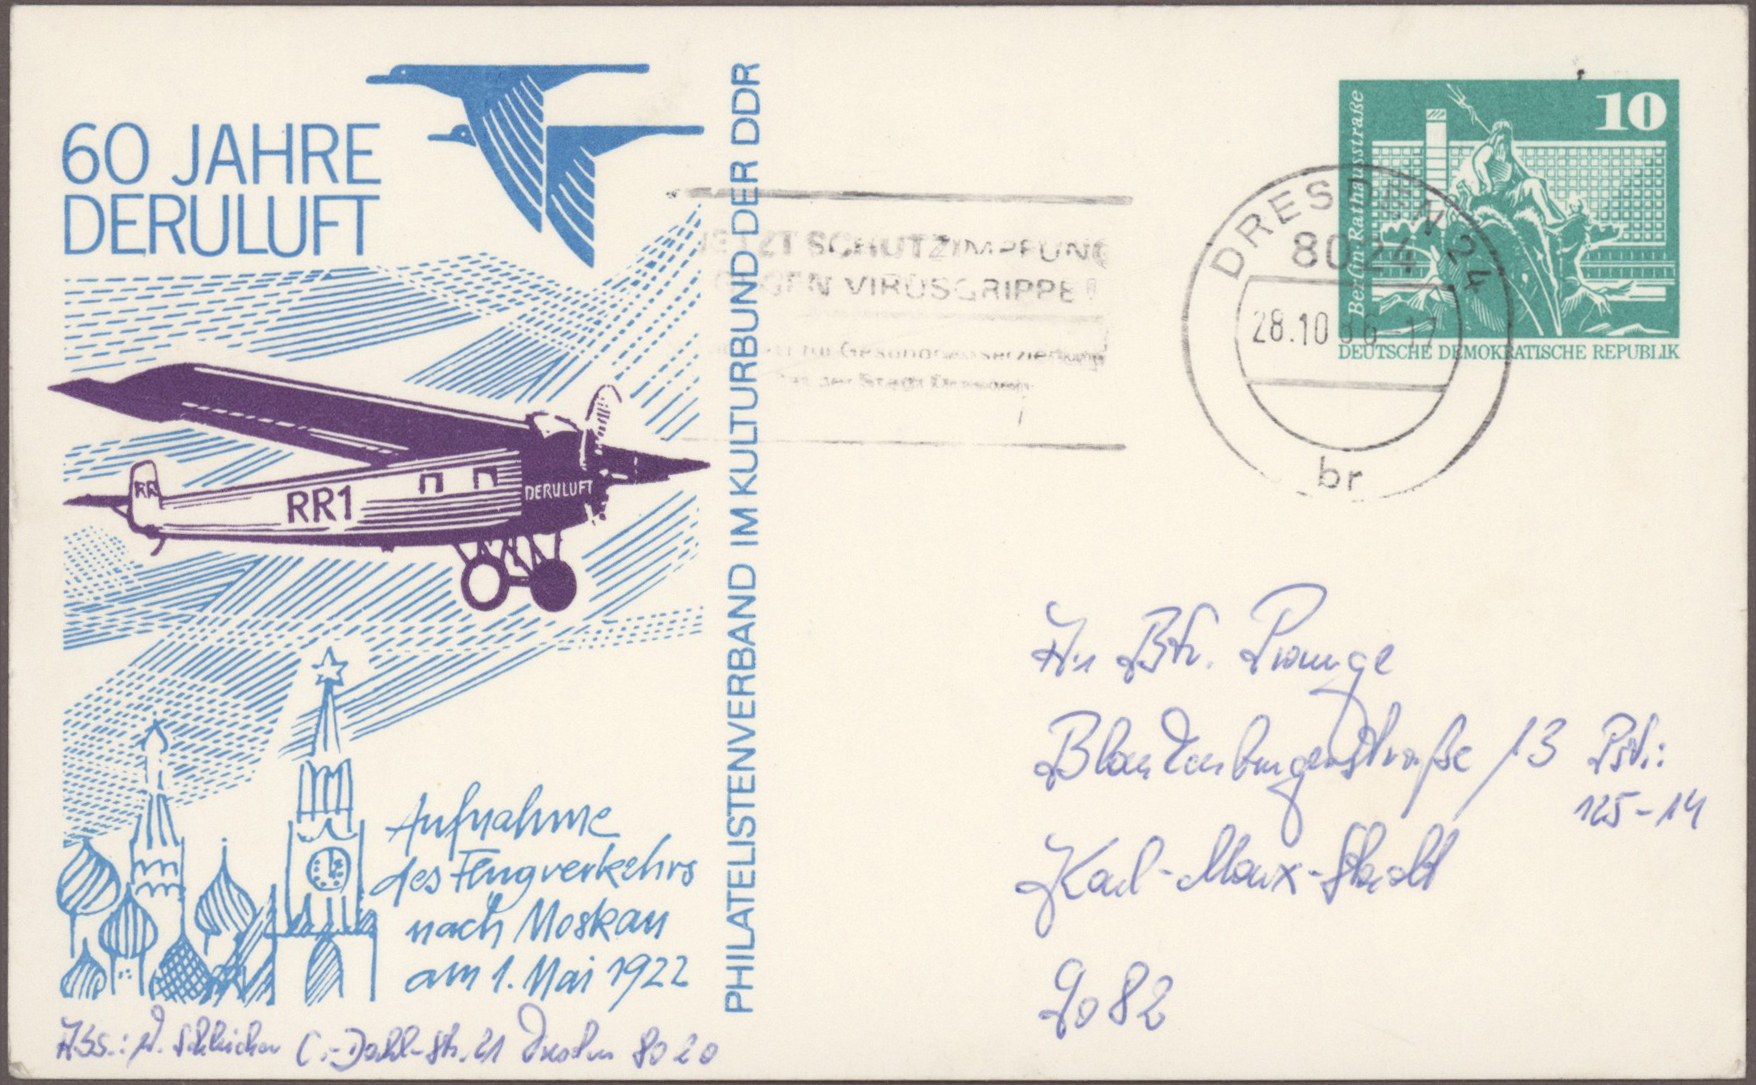 60 JAHRE
DERULUFT
RR
RR1
DERULUFT
Aufnahme
des Flugverkehrs
nach Moskau
am 1. Mai 1922
PHILATELISTENVERBAND IM KULTURBUND DER DDR
JETZT SCHUTZIMPFUNG
GEGEN VIRUSGRIPPE!
für Gesundheitserziehung
der Stadt Dresden
DRESDEN 24
8024
28.10.86-17
br
10
Berlin Rathausstraße
DEUTSCHE DEMOKRATISCHE REPUBLIK
An Bfr. Prange
Blankenburgerstraße 13 Pstf.:
125-14
Karl-Marx-Stadt
9082
Abs.: C.-Dahl-Str. 21 Dresden 8020